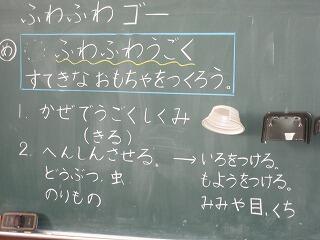 ふわふわ ゴー
め ふわふわうごく
すてきな おもちゃをつくろう。
1. かぜでうごくしくみ
(きる)
2. へんしんさせる。→ いろをつける。
どうぶつ、虫 もようをつける。
のりもの みみや目、くち